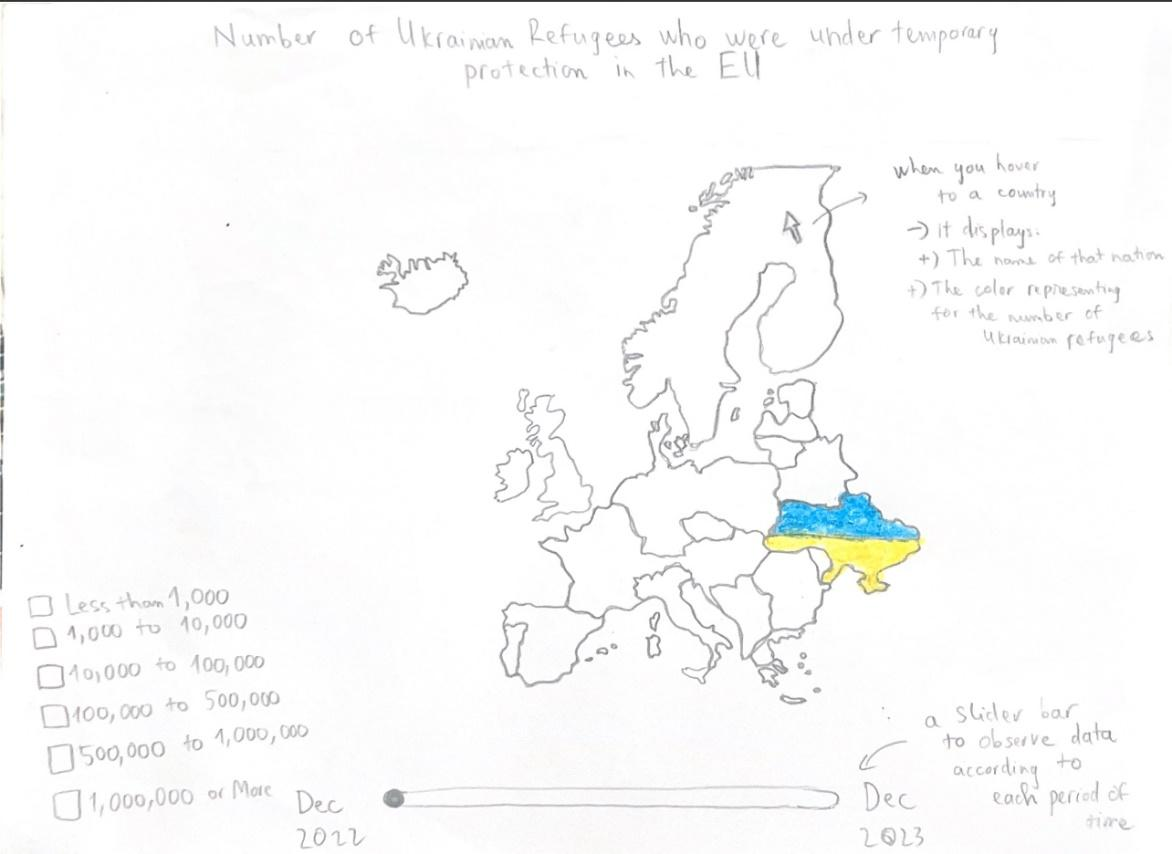 Number of Ukrainian Refugees who were under temporary
protection in the EU
when you hover
to a country
→ it displays:
+) The name of that nation
+) The color representing
for the number of
Ukrainian refugees
Less than 1,000
1,000 to 10,000
10,000 to 100,000
100,000 to 500,000
500,000 to 1,000,000
1,000,000 or More
Dec
2022
a slider bar
to observe data
according to
each period of
time
Dec
2023